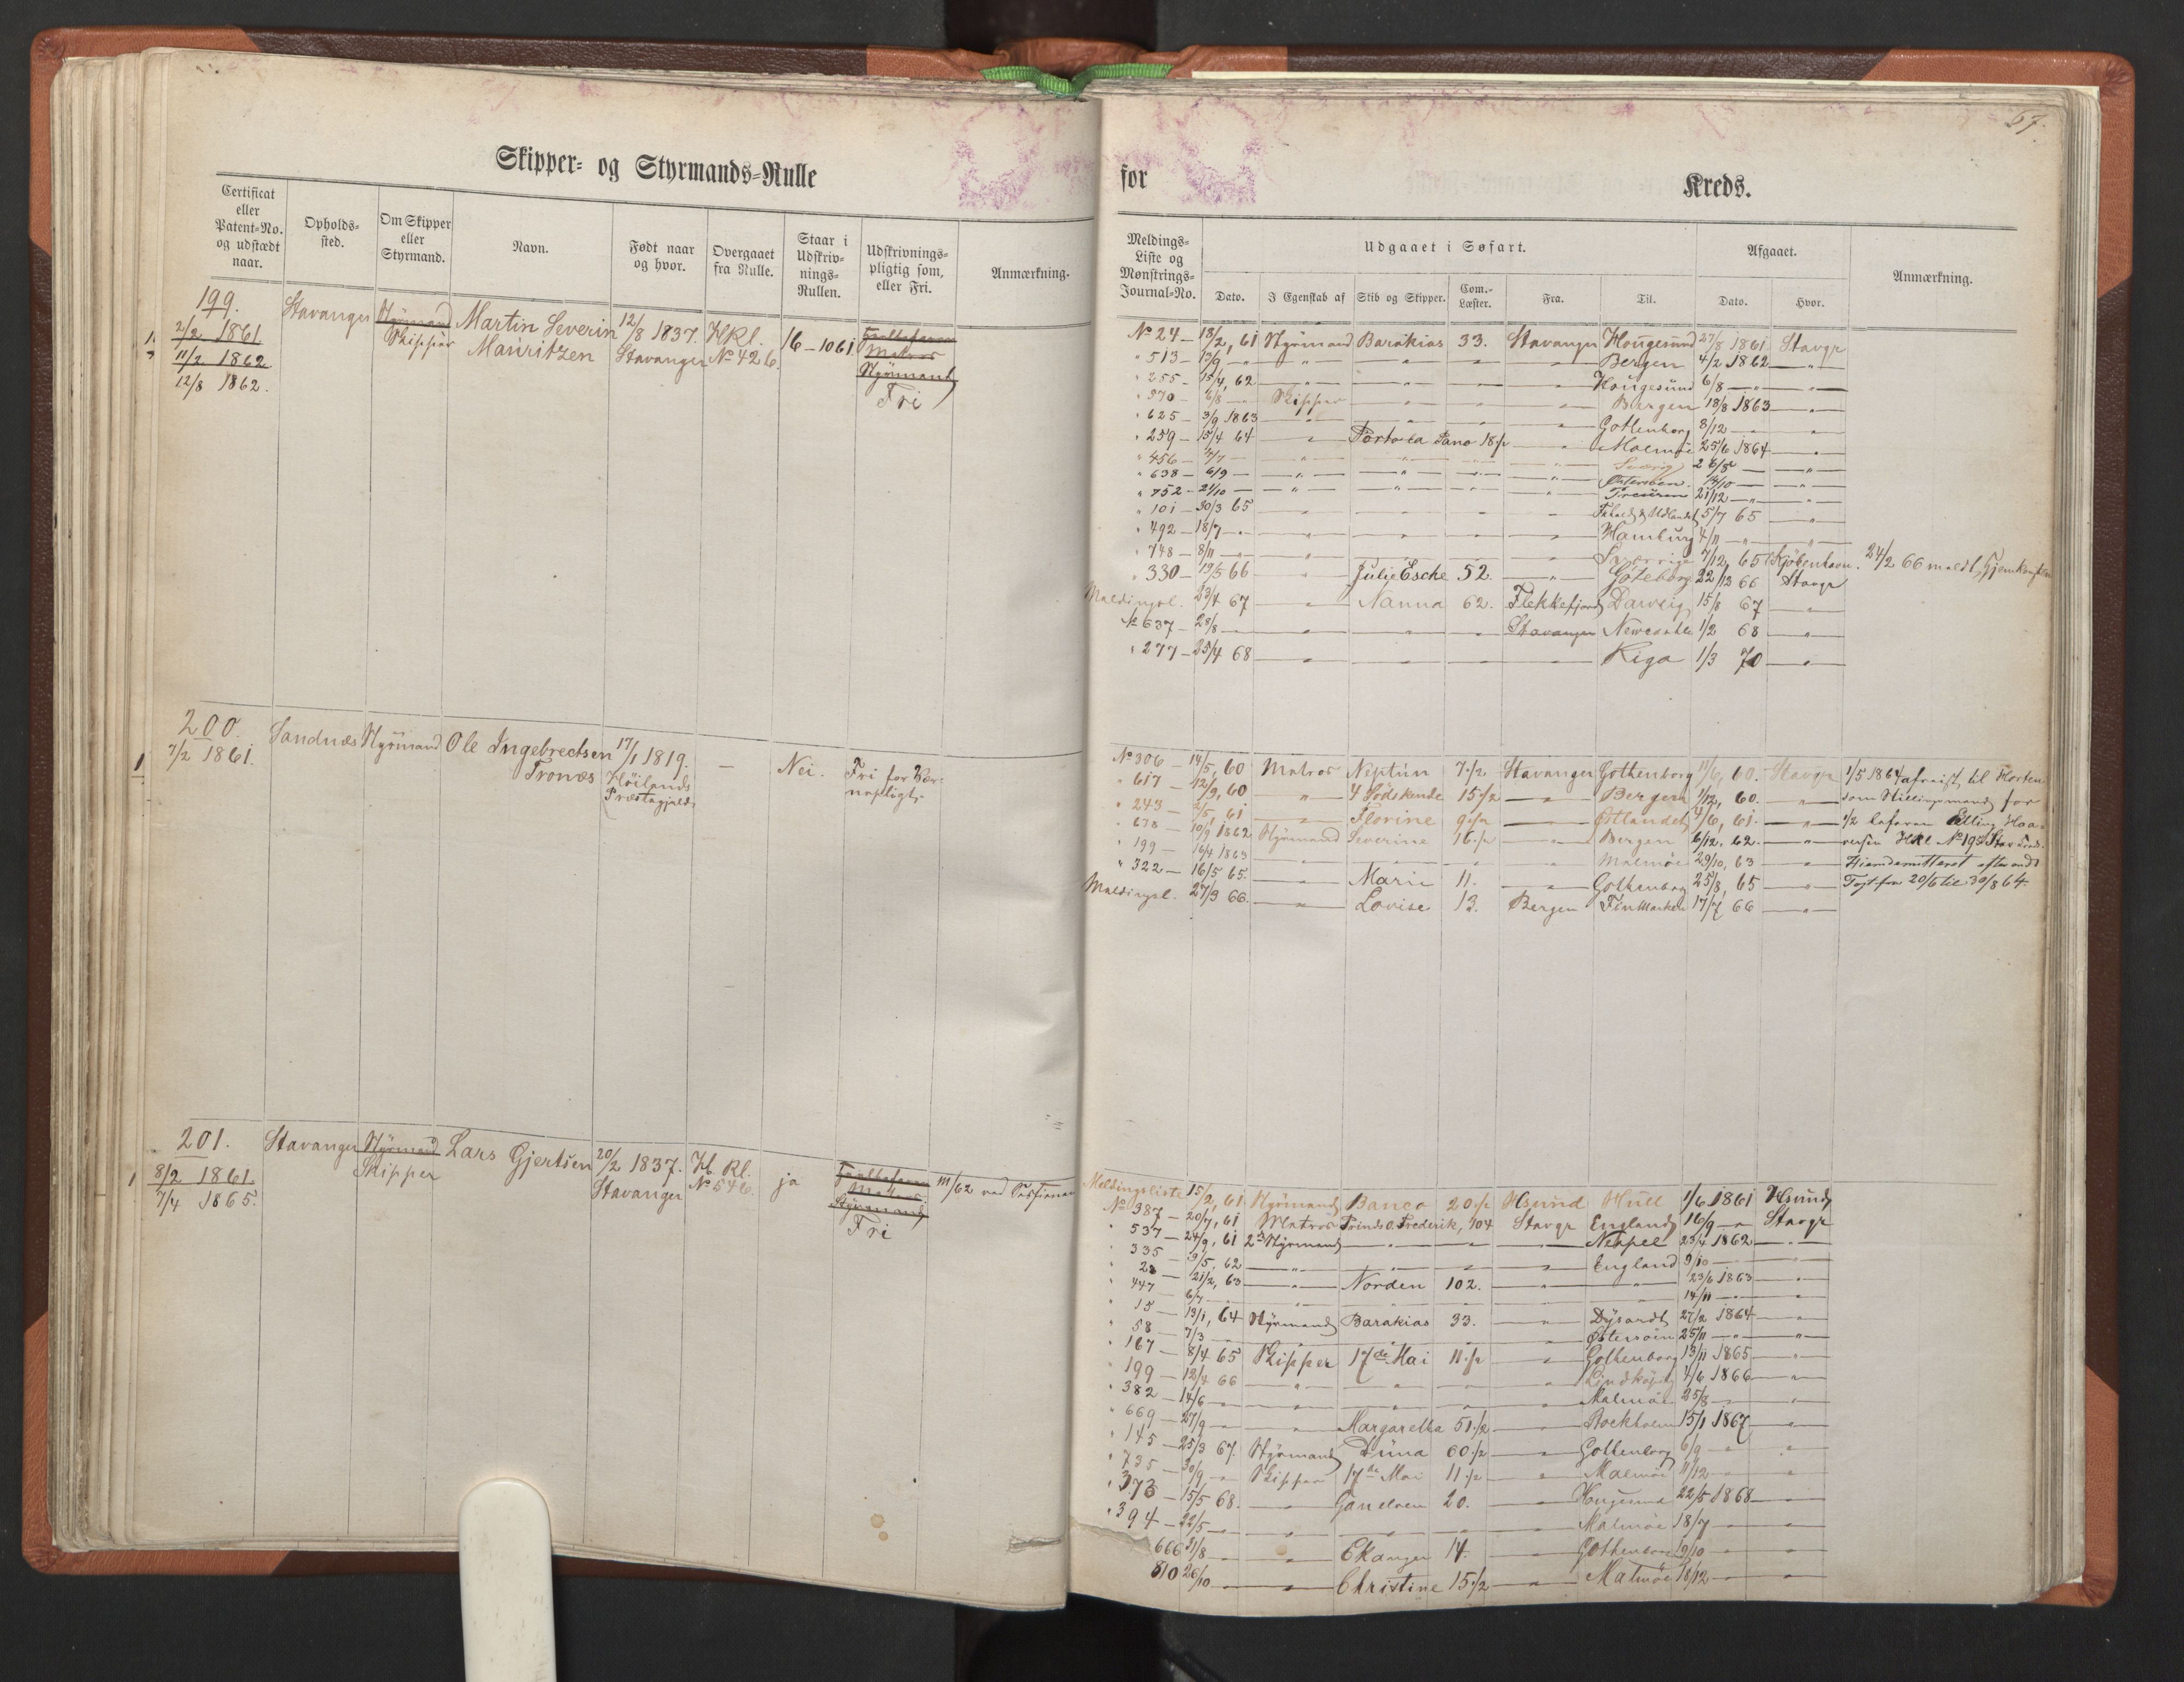 Skipper- og Styrmands-Rulle
Certificat eller Patent-No. og udstædt naar.
Opholds-sted.
Om Skipper eller Styrmand.
Navn.
Født naar og hvor.
Overgaaet fra Rulle.
Staar i Udskriv-nings-Rullen.
Udskrivnings-pligtig som, eller Fri.
Anmærkning.
199.
2/2 1861
11/2 1862
12/8 1862.
Stavanger
Styrmand
Skipper
Martin Severin
Mauritzen
12/8 1837.
Stavanger
HRl.
No 426.
16-1061
Matros
Styrmand
Fri
200.
7/2 1861.
Sandnæs
Styrmand
Ole Ingebrectsen
Tronæs
17/1 1819.
Höilands
Præstegjeld
—
Nei.
Fri for Vær-
nepligt
201.
8/2 1861.
7/4 1865.
Stavanger
Styrmand
Skipper
Lars Gjertsen
20/2 1837.
Stavanger
H. Rl.
No 546.
ja
Matros
Styrmand
Fri
for Kreds.
67.
Meldings-Liste og Mønstrings-Journal-No.
Udgaaet i Søfart.
Dato.
I Egenskab af
Skib og Skipper.
Com.-Læster.
Fra.
Til.
Afgaaet.
Dato.
Hvor.
Anmærkning.
No 24 — 18/2, 61 Styrmand Barakias 33. Stavanger Hougesund 27/8 1861 Stavgr
" 513 — 13/9 — " — " — Bergen 4/2 1862 — "
" 255 — 15/4, 62 — " — " — Hougesund 6/8 — " — "
" 570 — 6/8 — Skipper — " — Bergen 18/8 1863 — "
" 625 — 3/9 1863 — " — Gottenborg 8/12 — "
" 259 — 15/4 64 — " — 18 1/2 — Malmöe 25/6 1864 — "
" 456 — — " — " —
" 638 — 6/9 — " — " — 14/10 — "
" 752 — 21/10 — " — " — 21/12 — " — "
" 101 — 30/3 65 — " — 5/7 65 — "
" 492 — 18/7 — " — Hamburg 4/11 — " — "
" 748 — 8/11 — " — Sverrige 7/12 65 Kjöbenhavn. 24/2 66 meldt Hjemkomsten
" 330 — 19/5 66 — " — Julie Esche 52. — " — Göteborg 22/12 66 Stavgr
Meldingsl. 23/4 67 — " — Nanna 62. Flekkefjord Danzig 15/8 67 — "
No 637 — 28/8 — " — Stavanger Newcastle 1/2 68 — "
" 277 — 25/4 68 — " — Riga 1/3 70 — "
No 306 — 14/5, 60 Matros Neptun 7 1/2 Stavanger Gothenborg 11/6, 60. Stavgr 1/5 1864 afreist til Horten
" 617 — 12/9, 60 — " — 4 Södskende 15 1/2 — " — Bergen 1/12, 60. — " som Stillingsmand for
" 243 — 2/5, 61 — Florine 9 1/2 — " — Östlandet 4/6, 61. — " 1/2 Elling Haa-
" 678 — 10/9 1862 Styrmand Severine 16 1/2 — Bergen 6/12. 62. — " versen
" 199 — 16/4 1863 — " — Malmöe 29/10, 63 — " Hjemdemitteret efter endt
" 322 — 16/5 65. — " — Marie 11. — " — Gothenborg 25/8, 65 — " Togt fra 20/6 til 30/8 64.
Meldingsl. 27/3 66. — " — Lovise 13. Bergen Finmarken 17/7 66 — "
Meldingsliste 15/2, 61 Styrmand Banco 20 1/2 Hsund Hull 1/6 1861 Hsund
No 387 — 20/7, 61 Matros Prinds O. Frederik, 104 Stavgr England 16/9 — " Stavgr
" 537 — 24/9, 61 2den Styrmand — " — Neapel 23/4 1862 — "
" 335 — 9/5, 62 — " — England 9/10 — "
" 23 — 21/2, 63 — " — Norden 102. — " — 23/6 1863 — "
" 447 — 6/7 — " — 14/11 — "
" 15 — 13/1, 64 Styrmand Barakias 33. — " — Dysardt 27/2 1864 — "
" 58 — 7/3 — " — Östersöen 25/11 — " — "
" 167 — 8/4 65 Skipper 17de Mai 11 1/2 — " — Gothenborg 13/11 1865 — "
" 199 — 12/4 66 — " — Lindköping 4/6 1866 — "
" 382 — 14/6 — " — Malmöe 25/8 — "
" 669 — 27/9 — " — Margaretha 51 1/2 — " — Stockholm 15/1 1867 — "
" 145 — 25/3 67. Styrmand 60 1/2 — " — Gottenborg 6/9 — "
" 735 — 30/9 — " Skipper 17de Mai 11 1/2 — " — Malmöe 11/12 — "
" 373 — 15/5 68. — " — Ganelven 20. — " — Hougesund 22/5 1868 — "
" 394 — 22/5 — " — Malmöe 18/7 — "
666 31/8 — " — Ekanger 14. — " — Gothenborg 19/10 — "
810 26/10 — " — Christine 15 1/2 — " — Malmöe 18/12 — "